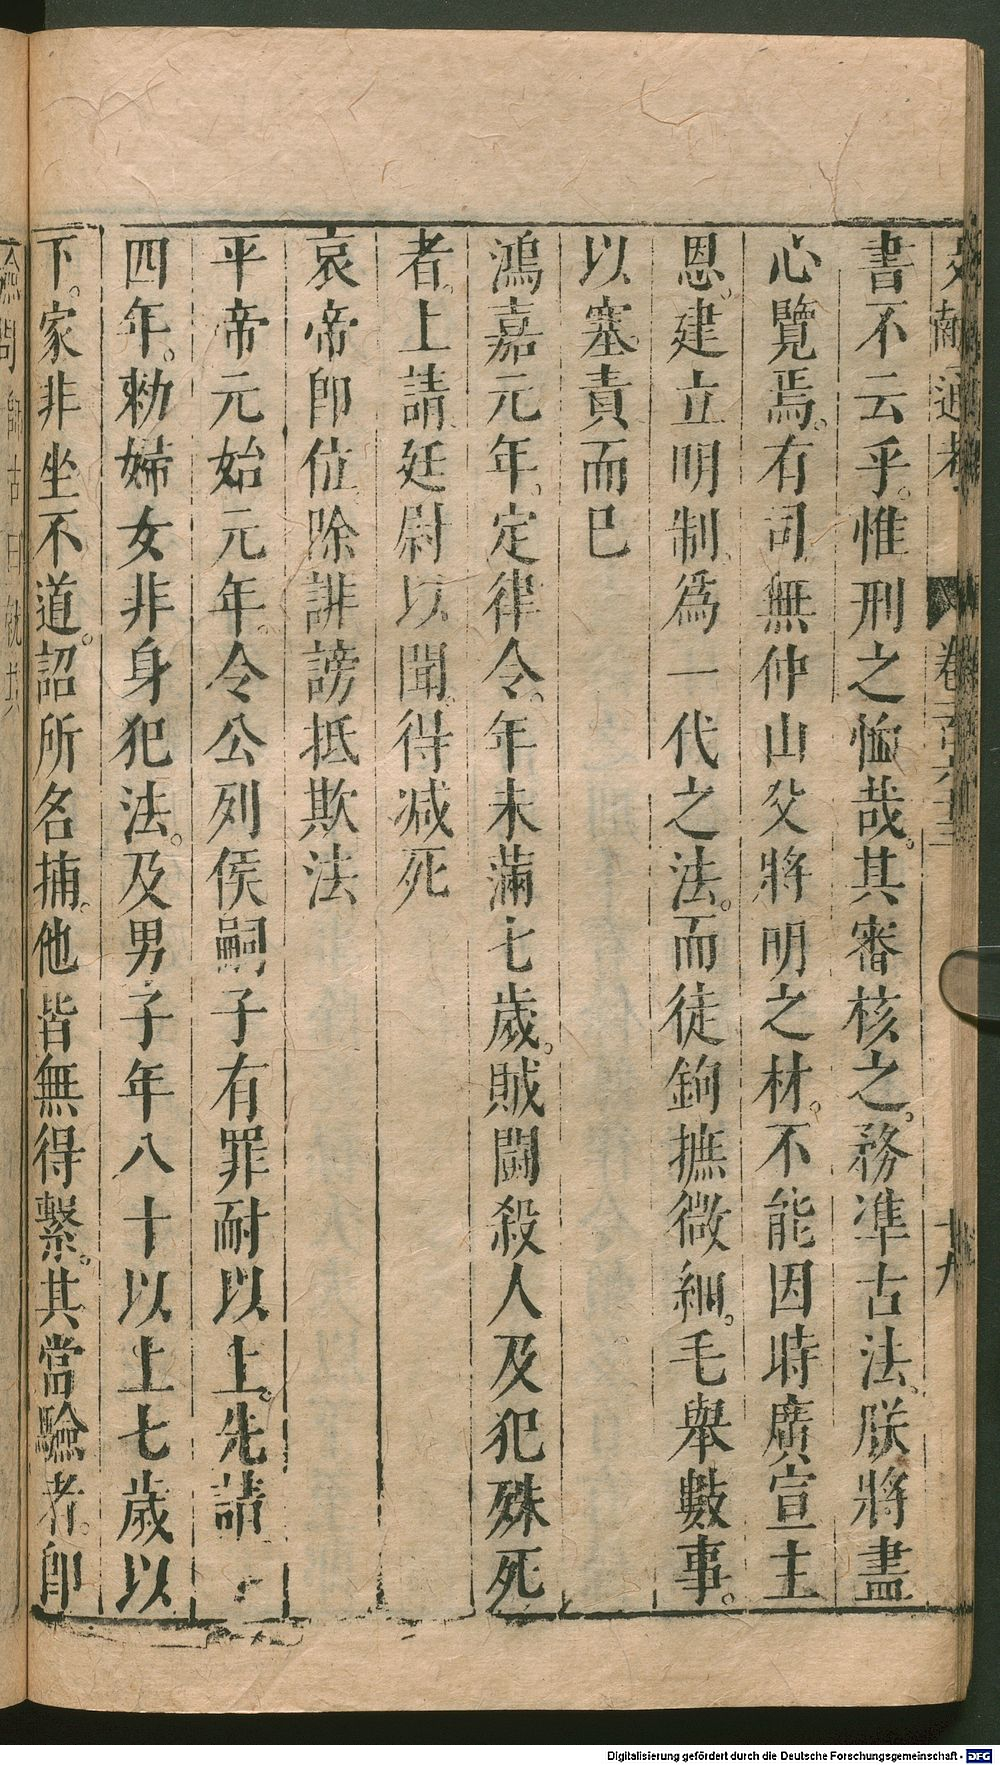 文獻通考　卷一百六十三　十九
書不云乎。惟刑之恤哉。其審核之。務凖古法。朕將盡
心覽焉。有司無仲山父將明之材。不能因時廣宣主
恩。建立明制爲一代之法。而徒鉤摭微細。毛舉數事。
以塞責而已
鴻嘉元年。定律令。年未滿七歲。賊鬬殺人及犯殊死
者。上請廷尉以聞。得减死
哀帝卽位除誹謗抵欺法
平帝元始元年。令公列侯嗣子有罪耐以上。先請
四年。勑婦女非身犯法。及男子年八十以上七歲以
下。家非坐不道。詔所名捕。他皆無得繫。其當驗者。卽
Digitalisierung gefördert durch die Deutsche Forschungsgemeinschaft - DFG